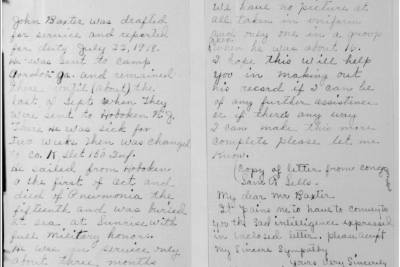 John Baxter was drafted
for service and reported
for duty July 22, 1918.
He was sent to camp
Gordon Ga. and remained
there until (about) the
last of Sept when They
were sent to Hoboken N.J.
There He was sick for
two weeks then was changed
to Co. K 51st Inf.
He sailed from Hoboken
the first of Oct and
died of Pneumonia the
fifteenth and was buried
at sea at Sunrise with
full military honors.
He was in service only
about three months
We have no picture at
all taken in uniform
and only one in a group
when he was about 16.
I hope this will help
you in making out
his record if I can be
of any further assistance
or if there's any way
I can make this more
complete please let me
know.
(Copy of letter from
Sam R Sells.
My dear Mr Baxter.
It pains me to have to
you the sad intelligence expressed
in enclosed letter. please accept
my Sincere Sympathy
Yours Very Sincerely